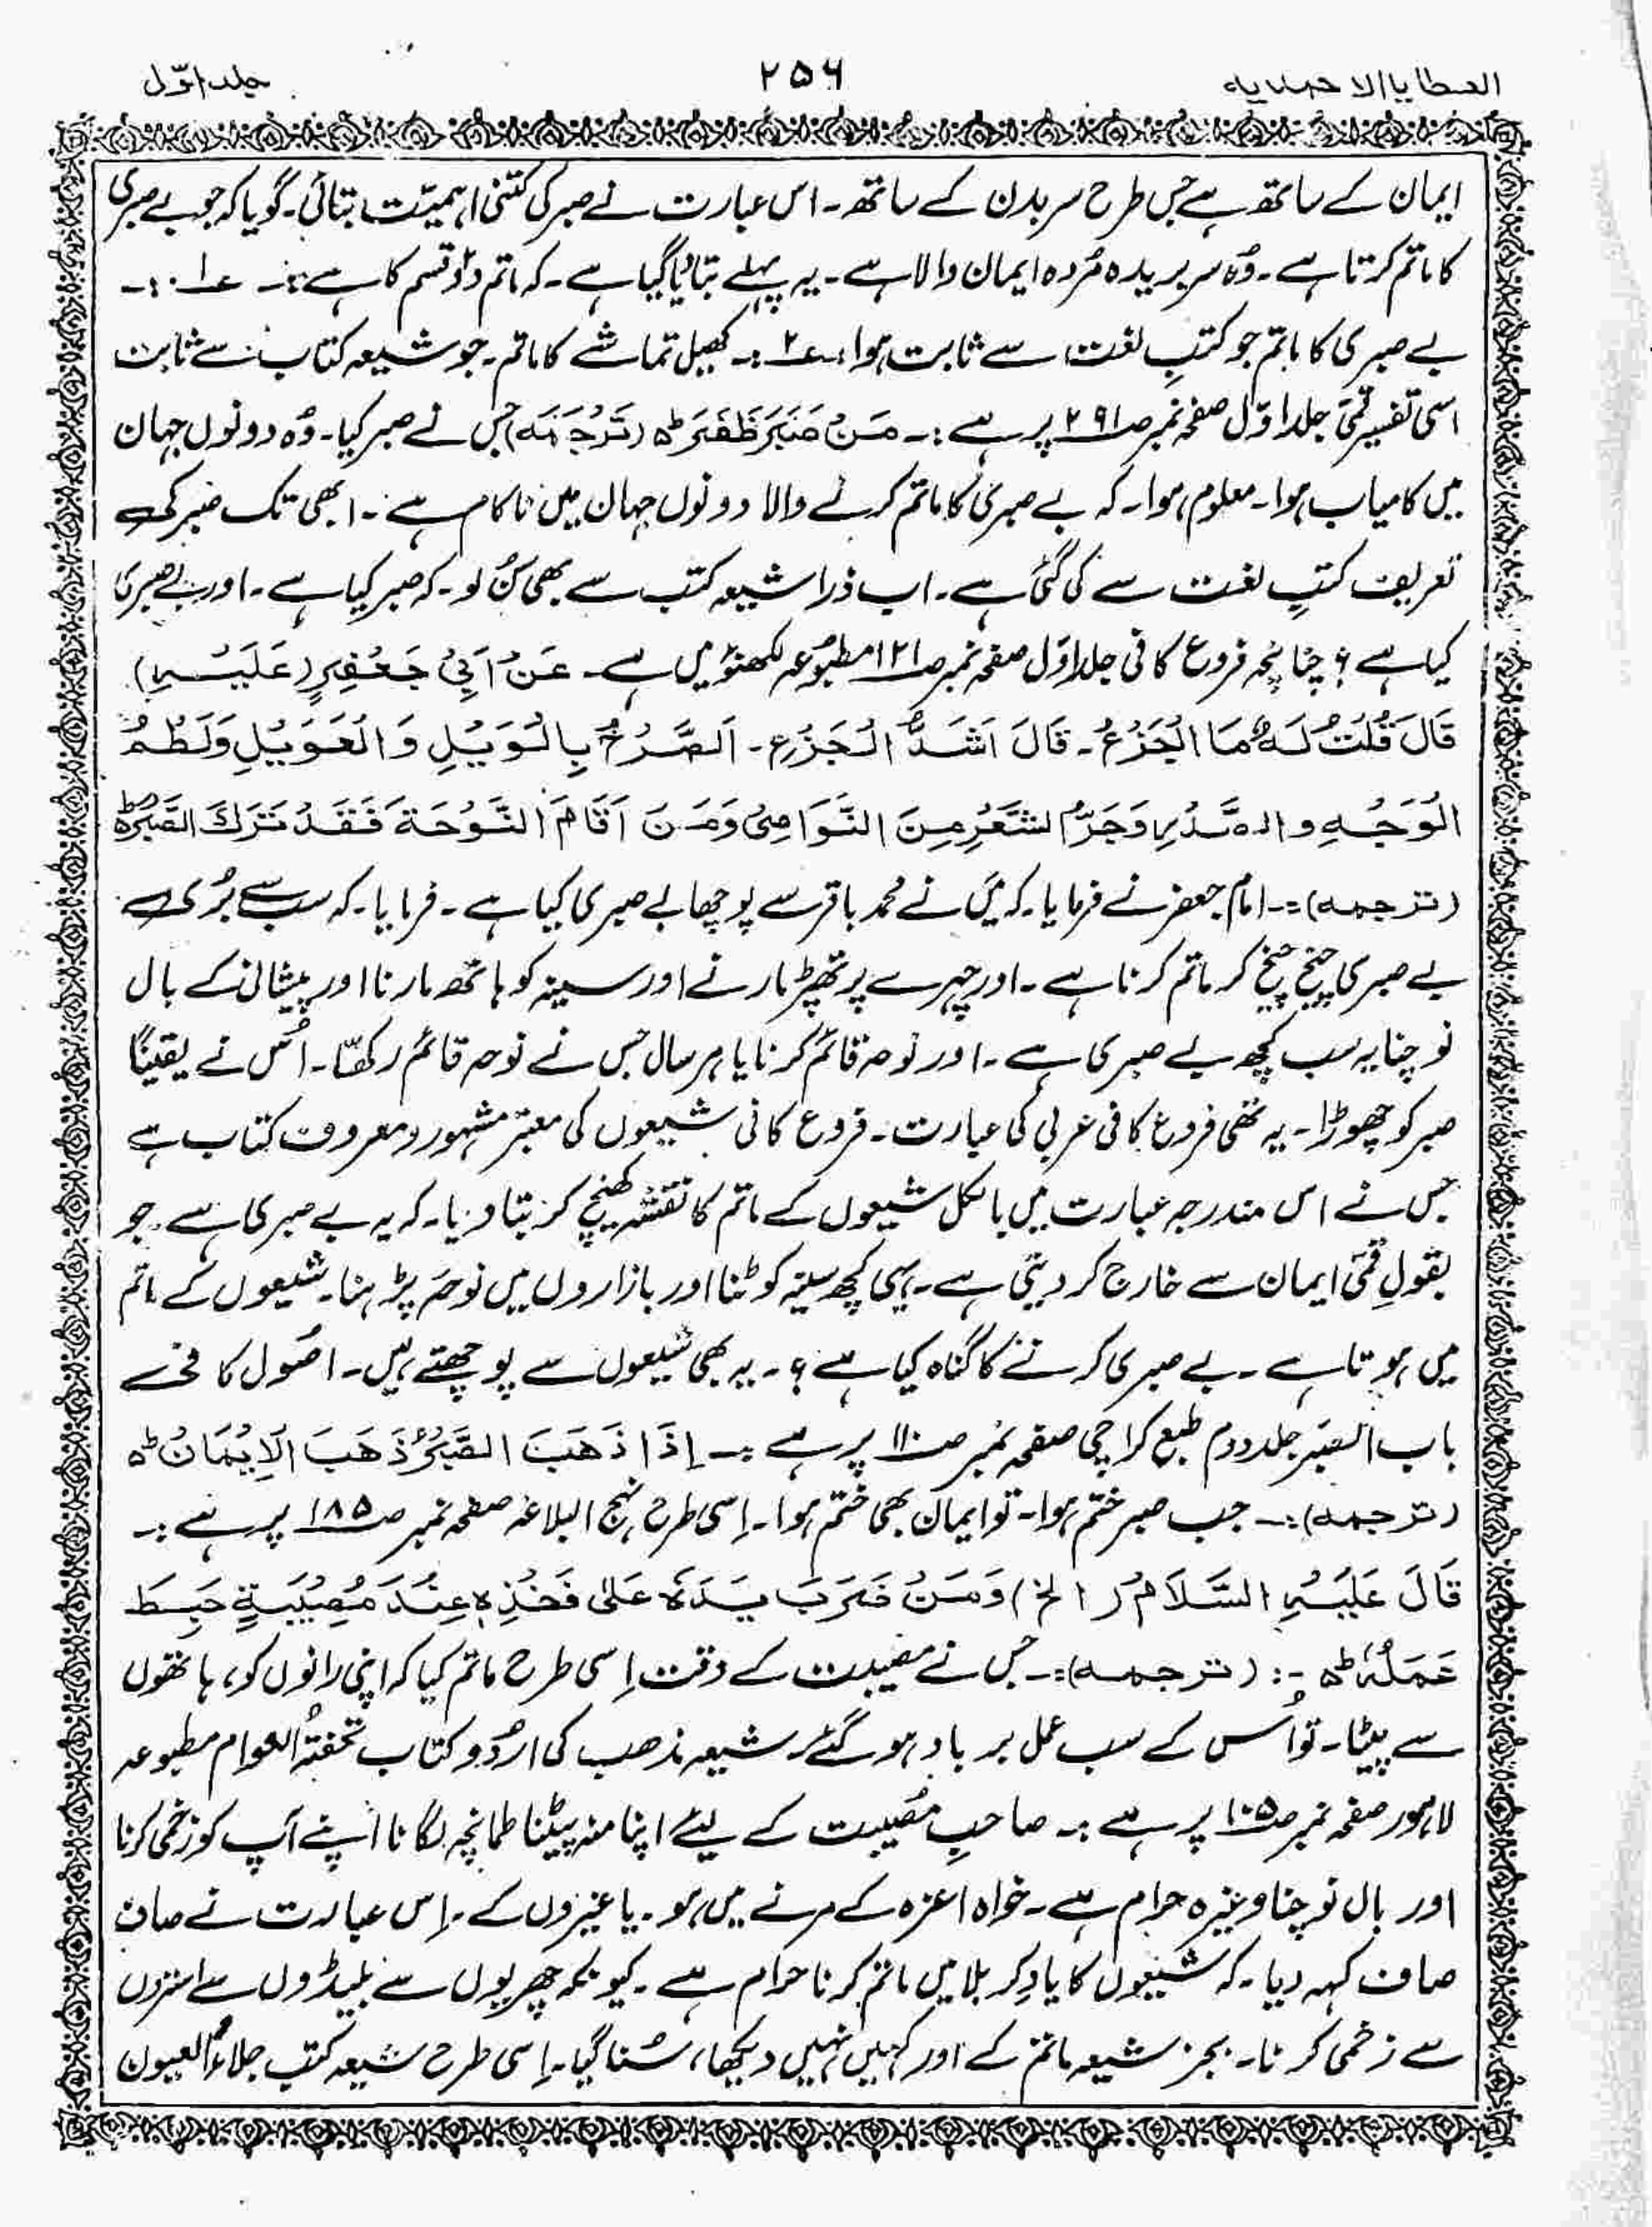 العطایا الاحمدیہ ۲۵۶ جلد اوّل
ایمان کے ساتھ ہے جس طرح سر بدن کے ساتھ۔ اس عبارت نے صبر کی کتنی اہمیّت بتائی۔ گویا کہ جو بے صبری
کا ماتم کرتا ہے۔ وُہ سر بریدہ مُردہ ایمان والا ہے۔ یہ پہلے بتایا گیا ہے۔ کہ ماتم دوٗ قسم کا ہے :۔ ۱؎ :۔
بے صبری کا ماتم جو کتبِ لغت سے ثابت ہوا ؛ ۲؎ :۔ کھیل تماشے کا ماتم۔ جو شیعہ کتاب سے ثابت
اسی تفسیر قمیّ جلد اوّل صفحہ نمبر ص۲۹۱ پر ہے :۔ مَنْ صَبَرَ ظَفَرَ ط ہ (تَرْجَمَہ) جس نے صبر کیا۔ وُہ دونوں جہان
میں کامیاب ہوا۔ معلوم ہوا۔ کہ بے صبری کا ماتم کرنے والا دونوں جہان میں ناکام ہے۔ ابھی تک صبر کی
تعریف کتبِ لغت سے کی گئی ہے۔ اب ذرا شیعہ کتب سے بھی سُن لو۔ کہ صبر کیا ہے۔ اور بے صبری
کیا ہے ؟ چنانچہ فروع کافی جلد اوّل صفحہ نمبر ص۱۲۱ مطبوُعہ لکھنؤ میں ہے۔ عَنْ اَبِیْ جَعْفِرٍ (عَلَیْہِ)
قَالَ قُلْتُ لَہٗ مَا الْجَزْعُ۔ قَالَ اَشَدُّ الْجَزْعِ۔ اَلصَّرْخُ بِالْوَیْلِ وَالْعَوِیْلِ وَلَطْمُ
الْوَجْہِ والصَّدْرِ وَجَزُّ الشَّعْرِ مِنَ النَّوَاصِیْ وَمَنَ اَقَامَ النَّوْحَۃَ فَقَدْ تَرَكَ الصَّبْرَ ط ہ
(ترجمہ) :۔ امام جعفر نے فرمایا۔ کہ مَیں نے محمد باقر سے پوچھا بے صبری کیا ہے۔ فرمایا۔ کہ سب سے بڑی
بے صبری چیخ چیخ کر ماتم کرنا ہے۔ اور چہرے پر تھپڑ مارنے اور سینہ کو ہاتھ مارنا اور پیشانی کے بال
نوچنا یہ سب کچھ بے صبری ہے۔ اور نوحہ قائم کرنا یا ہر سال جس نے نوحہ قائم رکھّا۔ اُس نے یقینًا
صبر کو چھوڑا۔ یہ تھی فروع کافی عربی کی عبارت۔ فروع کافی شیعوں کی معتبر مشہور و معروف کتاب ہے
جس نے اس مندرجہ عبارت میں بالکل شیعوں کے ماتم کا نقشہ کھینچ کر بتا دیا۔ کہ یہ بے صبری ہے۔ جو
بقولِ قمیّ ایمان سے خارج کر دیتی ہے۔ یہی کچھ سینہ کوٹنا اور بازاروں میں نوحہ پڑہنا۔ شیعوں کے ماتم
میں ہوتا ہے۔ بے صبری کرنے کا گناہ کیا ہے ؟ ۔ یہ بھی شیعوں سے پوچھتے ہیں۔ اصُول کافی
باب الصّبر جلد دوم طبع کراچی صفحہ نمبر ص۱۱۰ پر ہے :۔ اِذَا ذَھَبَ الصَّبْرُ ذَھَبَ الْاِیْمَانُ ط ہ
(ترجمہ) :۔ جب صبر ختم ہوا۔ تو ایمان بھی ختم ہوا۔ اِسی طرح نہج البلاغہ صفحہ نمبر ص۱۸۵ پر ہے :۔
قَالَ عَلَیْہِ السَّلَامُ (الخ) وَمَنْ ضَرَبَ یَدَہٗ عَلیٰ فَخُذِہٖ عِنْدَ مُصِیْبَۃٍ حَبِطَ
عَمَلُہٗ ط ہ :۔ (ترجمہ) :۔ جس نے مصیبت کے وقت اِسی طرح ماتم کیا کہ اپنی رانوں کو، ہاتھوں
سے پیٹا۔ تو اُس کے سب عمل برباد ہو گئے۔ شیعہ مذھب کی اردُو کتاب تحفتُہ العوام مطبوعہ
لاہور صفحہ نمبر ص۱۰۵ پر ہے :۔ صاحبِ مصُیبت کے لیئے اپنا منہ پیٹنا طمانچہ لگانا اپنے آپ کو زخمی کرنا
اور بال نوچنا وغیرہ حرام ہے۔ خواہ اعزہ کے مرنے میں ہو۔ یا غیروں کے۔ اِس عبارت نے صاف
صاف کہہ دیا۔ کہ شیعوں کا یادِ کربلا میں ماتم کرنا حرام ہے۔ کیونکہ چھریوں سے بلیڈوں سے استروں
سے زخمی کرنا۔ بجز شیعہ ماتم کے اور کہیں نہیں دیکھا، سُنا گیا۔ اِسی طرح شیعہ کتب جلاءُ العیون